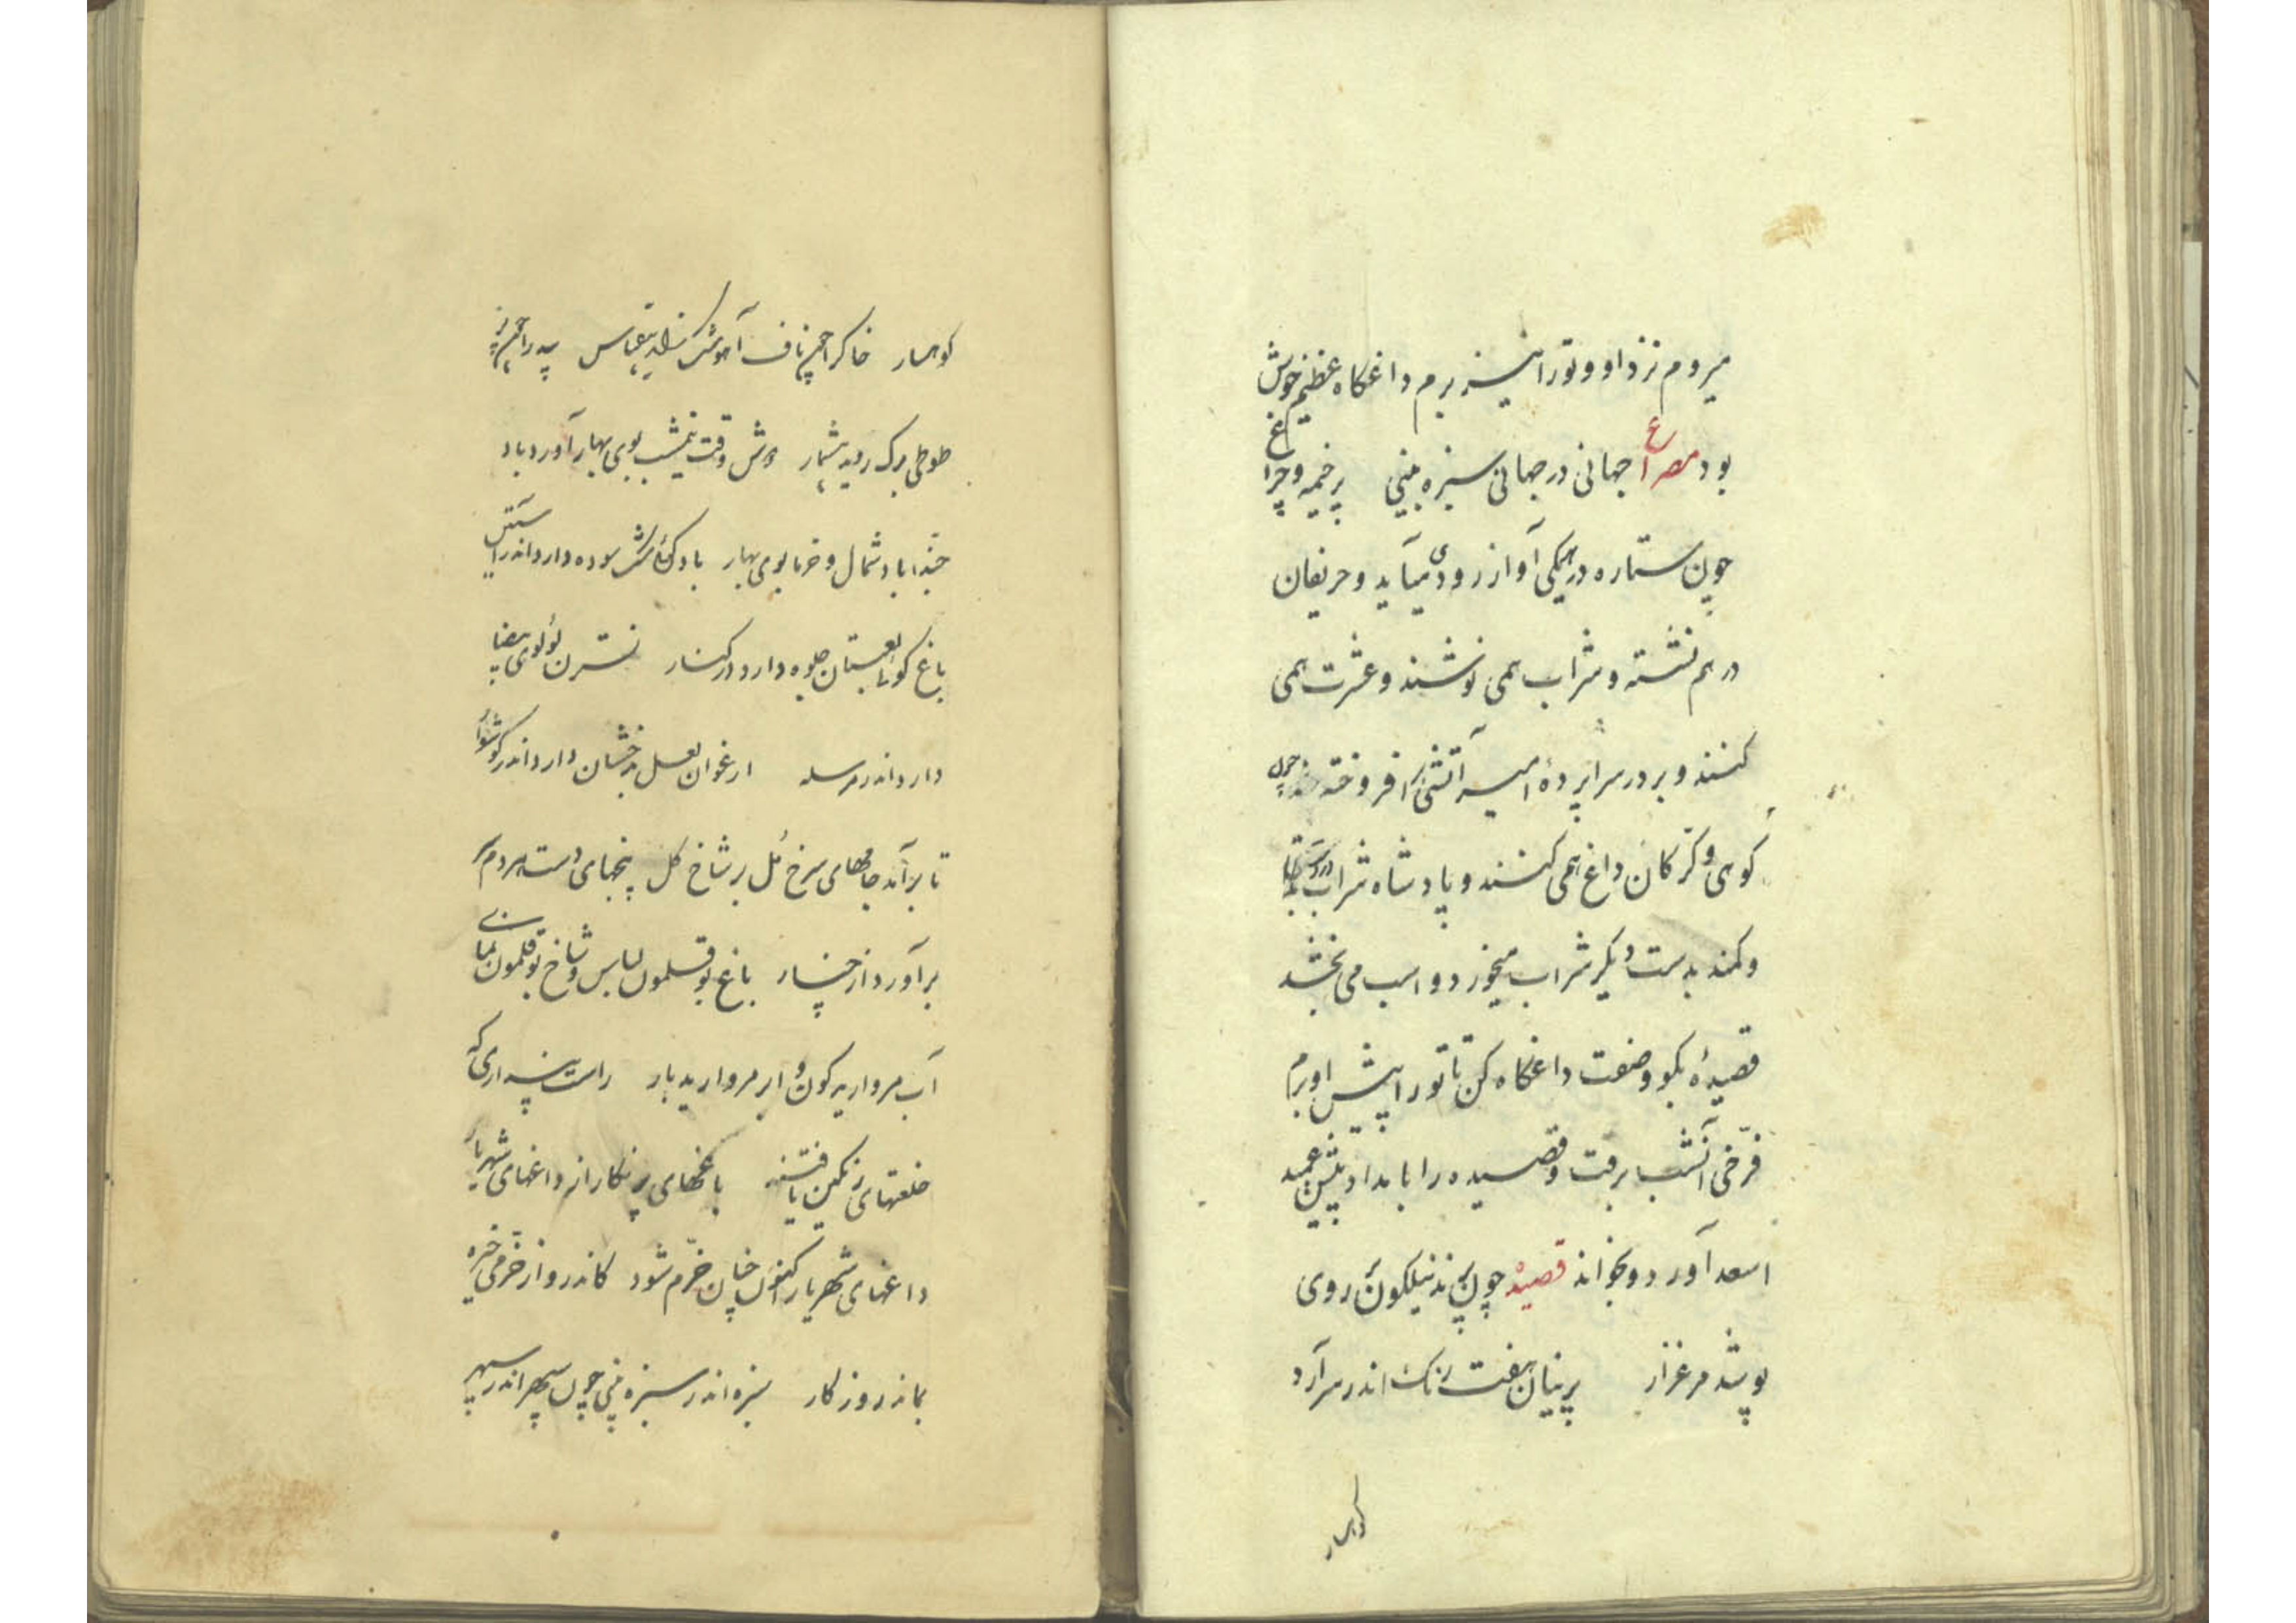 میروم نزد او و تورا نیز برم داغگاه عظیم خوش
بود مصراع جهانی در جهانی سبزه بینی پرخیمه و چراغ
چون ستاره در همکی آواز رودی میآید و حریفان
در هم نشسته و شراب همی نوشند و عشرت همی
کنند و بر در سراپردهٔ امیر آتشی افروخته چند چون
کوهی و کرّکان داغ همی کنند و پادشاه شراب در دست
و کمند بدست دیگر شراب میخورد و اسب می بخشد
قصیدهٔ بکو و صفت داغگاه کن تا تورا پیش او برم
فرّخی آنشب برفت و قصیده را بامداد پیش عمید
اسعد آورد و بخواند قصیدهٔ چون پرند نیلکون بر روی
پوشد مرغزار پرنیان هفت رنک اندر سر آرد
کوهسار
کوهسار خاک را چون ناف آهو مشک زاید بیقیاس بید را چون پر
طوطی برک روید بیشمار دوش وقت نیمشب بوی بهار آورد باد
حبّذا باد شمال و خرما بوی بهار باد کوئی مشک سوده دارد اندر آستین
باغ کوئی لعبتان جلوه دارد در کنار نسترن لؤلوی بیضا
دارد اندر مرسله ارغوان لعل بدخشان دارد اندر کوشوار
تا برآمد جامهای سرخ مُل بر شاخ کل پنجهای دست مردم سر
برآورد از چنار باغ بوقلمون لباس و شاخ بوقلمون نمای
آب مروارید کون و ابر مروارید بار راست پنداری که
خلعتهای رنکین یافتند باغهای پرنکار از داغهای شهریار
داغهای شهریار اکنون چنان خرّم شود کاندرو از خرّمی خیره
بماند روزکار سبزه اندر سبزه بینی چون سپهر اندر سپهر